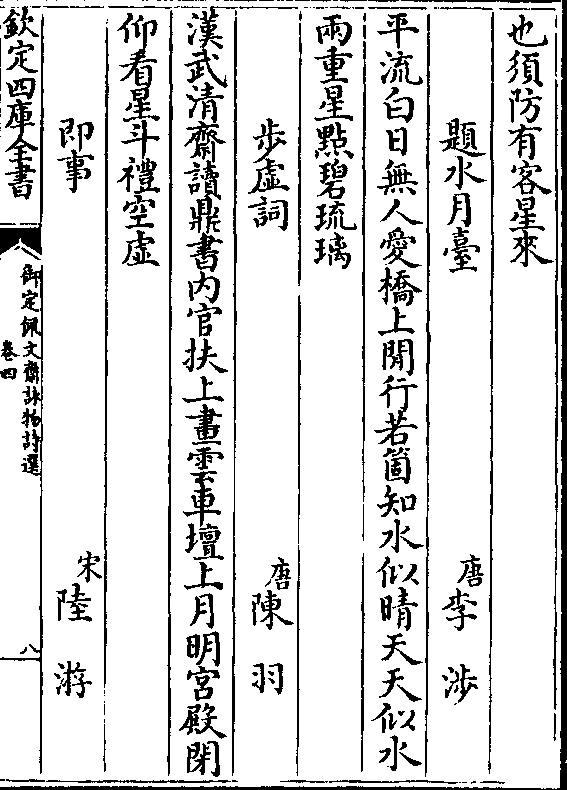 也須防有客星來
題水月臺 唐 李涉
平流白日無人愛橋上閒行若箇知水似晴天天似水
兩重星點碧琉璃
步虛詞 唐 陳羽
漢武清齋讀鼎書内官扶上畫雲車壇上月明宮殿閉
仰看星斗禮空虛
即事 宋 陸游
欽定四庫全書
御定佩文齋詠物詩選
卷四
八